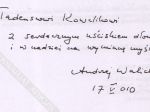 Tadeuszowi Kowalikowi
z serdecznym uściskiem dłoni
i w nadziei na wymianę myśli
Andrzej Walicki
17 V 010